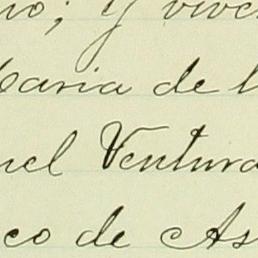 no; y vive
Maria de l
nel Ventura
co de As